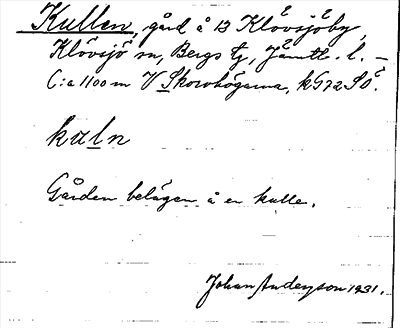 Kullen, gård å 13 Klövsjöby,
Klövsjö sn, Bergs tg, Jämtl. l. –
C:a 1100 m V Skorvhögarna, k G72 SÖ.
kuln
Gården belägen å en kulle.
Johan Anderson 1931.